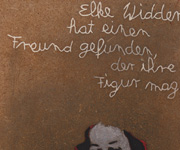 Elke Widder
hat einen
Freund gefunden,
der ihre
Figur mag